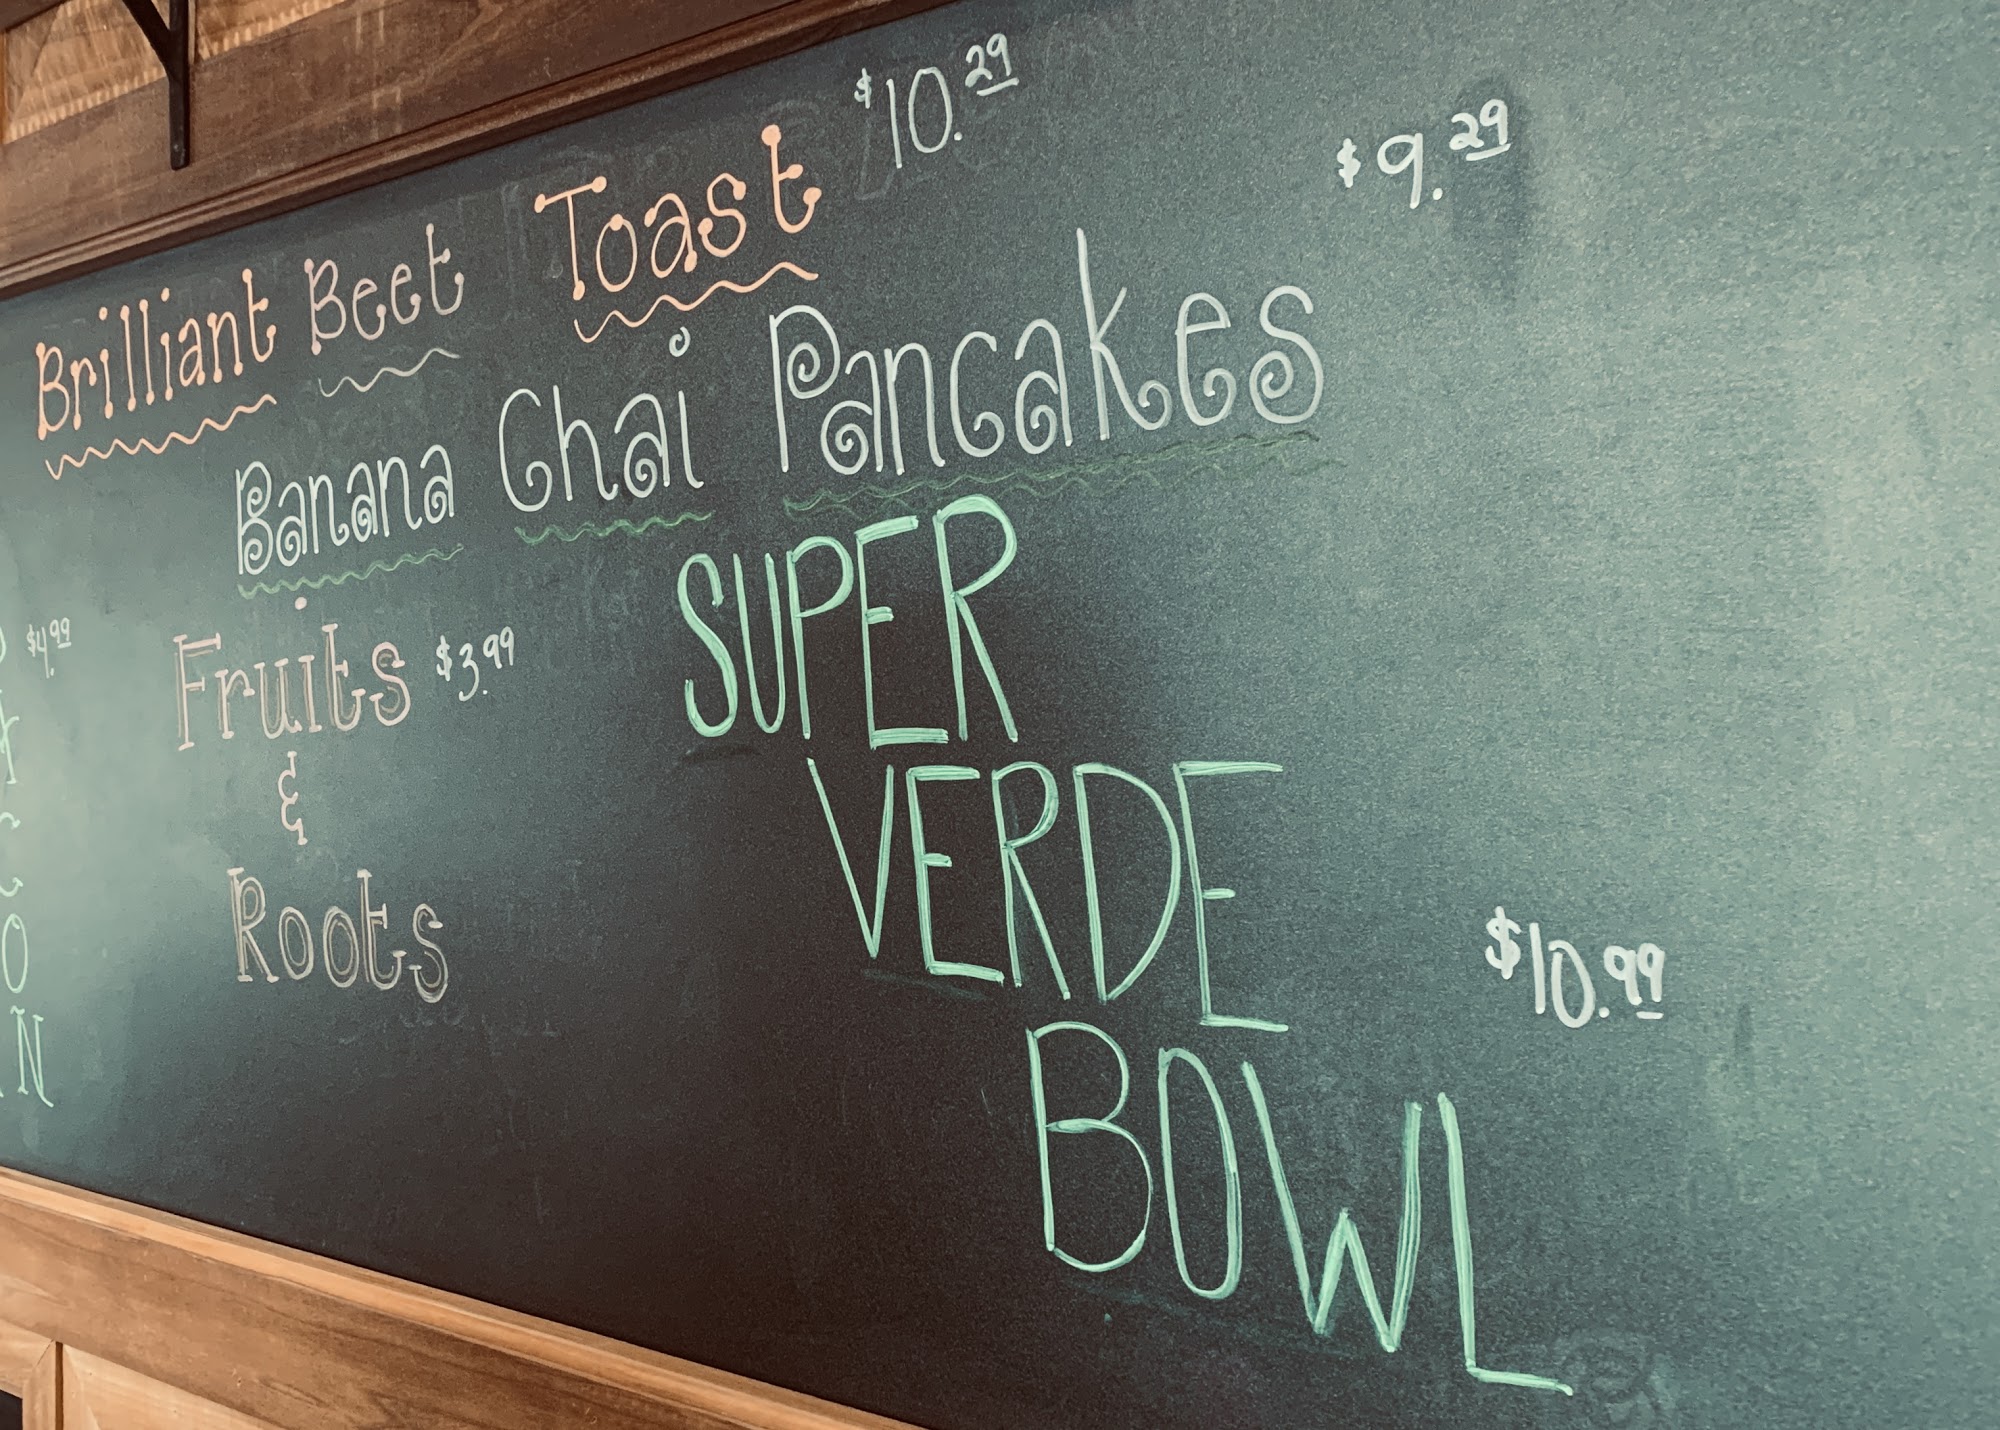 Brilliant Beet Toast $10.29
Banana Chai Pancakes $9.29
$4.99
Fruits $3.99
&
Roots
SUPER
VERDE
BOWL
$10.99